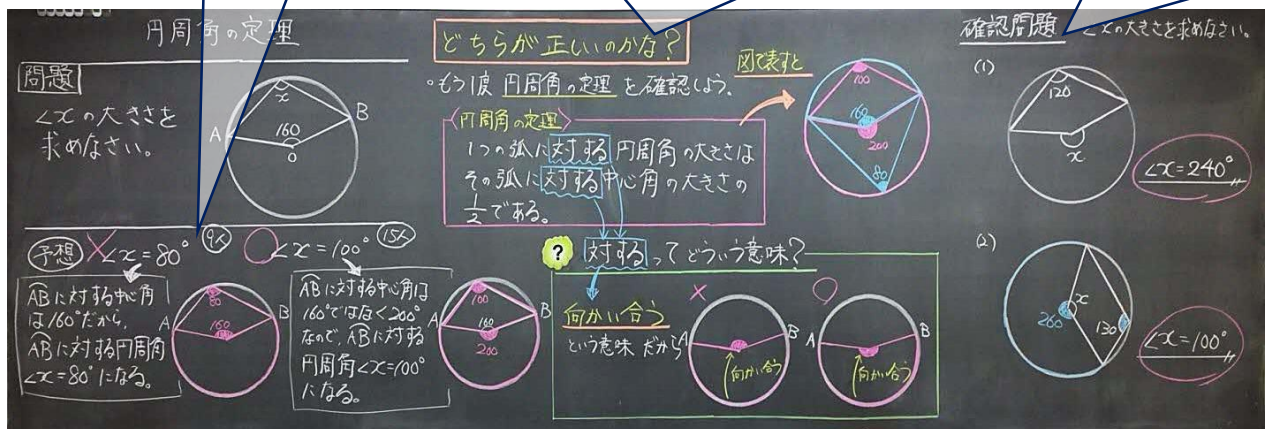 円周角の定理
問題
∠xの大きさを
求めなさい。
x
A
B
160
O
予想
×∠x=80°
9人
○∠x=100°
15人
ABに対する中心角
は160°だから、
ABに対する円周角
∠x=80°になる。
80
A
160
B
ABに対する中心角は
160°ではなく200°
なので、ABに対する
円周角∠x=100°
になる。
100
A
160
B
200
どちらが正しいのかな?
・もう1度 円周角の定理 を確認しよう。
〈円周角の定理〉
1つの弧に対する円周角の大きさは
その弧に対する中心角の大きさの
1/2である。
図で表すと
100
160
200
80
?
対するってどういう意味?
向かい合う
という意味 だから
×
A
B
向かい合う
○
A
B
向かい合う
確認問題 ∠xの大きさを求めなさい。
(1)
120
x
∠x=240°
(2)
260
x
130
∠x=100°